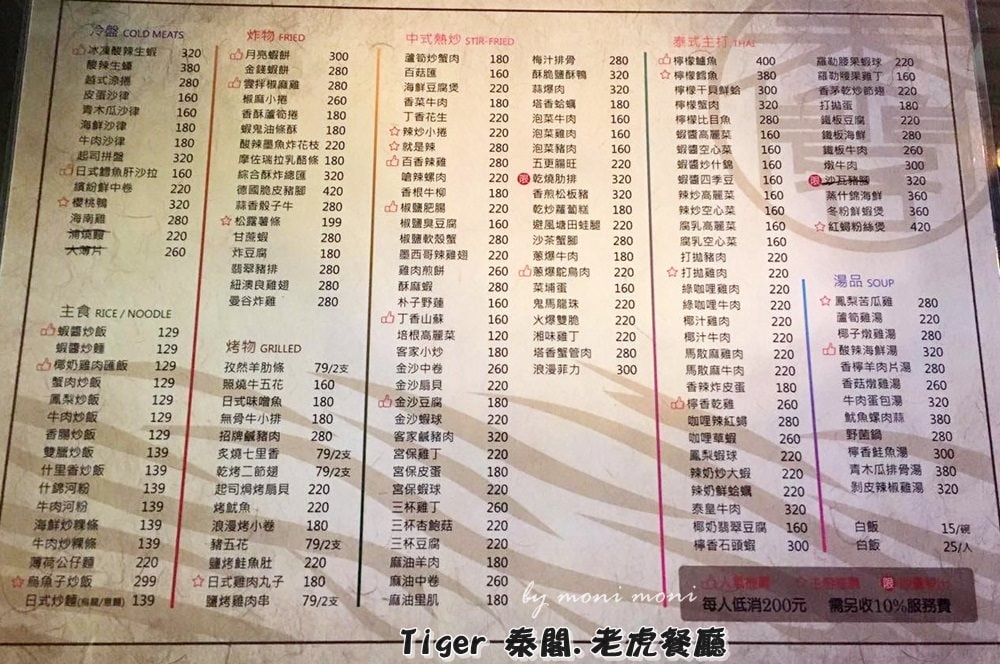 冷盤 COLD MEATS
冰凍酸辣生蝦 320
酸辣生蠔 380
越式涼捲 280
皮蛋沙律 160
青木瓜沙律 160
海鮮沙律 180
牛肉沙律 180
起司拼盤 320
日式鱈魚肝沙拉 160
繽紛鮮中卷 220
櫻桃鴨 320
海南雞 280
220
大薄片 260
主食 RICE / NOODLE
蝦醬炒飯 129
蝦醬炒麵 129
椰奶雞肉匯飯 129
蟹肉炒飯 129
鳳梨炒飯 129
牛肉炒飯 129
香腸炒飯 129
雙臘炒飯 139
什里香炒飯 139
什錦河粉 139
牛肉河粉 139
海鮮炒粿條 139
牛肉炒粿條 139
薄荷公仔麵 220
烏魚子炒飯 299
日式炒麵(烏龍/意麵) 139
炸物 FRIED
月亮蝦餅 300
金錢蝦餅 280
雲拌椒麻雞 280
椒麻小捲 260
香酥蘆筍捲 180
蝦鬼油條酥 180
酸辣墨魚炸花枝 220
摩佐瑞拉乳酪條 180
綜合酥炸總匯 320
德國脆皮豬腳 420
蒜香骰子牛 280
松露薯條 199
甘蔗蝦 280
炸豆腐 180
翡翠豬排 280
紐澳良雞翅 280
曼谷炸雞 280
烤物 GRILLED
孜然羊肋條 79/2支
照燒牛五花 160
日式味噌魚 180
無骨牛小排 180
招牌鹹豬肉 280
炙燒七里香 79/2支
乾烤二節翅 79/2支
起司焗烤扇貝 220
烤魷魚 220
浪漫烤小卷 180
豬五花 79/2支
鹽烤鮭魚肚 220
日式雞肉丸子 180
鹽烤雞肉串 79/2支
中式熱炒 STIR-FRIED
蘆筍炒蟹肉 180
百菇匯 160
海鮮豆腐煲 220
香菜牛肉 180
丁香花生 220
辣炒小捲 160
就是辣 280
百香辣雞 280
嗆辣螺肉 220
香根牛柳 180
椒鹽肥腸 220
椒鹽臭豆腐 160
椒鹽軟殼蟹 280
墨西哥辣雞翅 220
雞肉煎餅 260
酥麻蝦 280
朴子野蓮 160
丁香山蘇 160
培根高麗菜 120
客家小炒 180
金沙中卷 260
金沙扇貝 220
金沙豆腐 180
金沙蝦球 220
客家鹹豬肉 320
宮保雞丁 220
宮保皮蛋 180
宮保蝦球 220
三杯雞丁 260
三杯杏鮑菇 220
三杯豆腐 220
麻油羊肉 180
麻油中卷 260
麻油里肌 180
梅汁排骨 280
酥脆鹽酥鴨 320
蒜爆肉 320
塔香蛤蠣 180
泡菜牛肉 160
泡菜雞肉 160
泡菜豬肉 160
五更腸旺 220
限 乾燒肋排 320
香煎松板豬 320
乾炒蘿蔔糕 180
避風塘田蛙腿 220
沙茶蟹腳 280
蔥爆牛肉 180
蔥爆鴕鳥肉 220
菜埔蛋 160
鬼馬龍珠 220
火爆雙脆 220
湘味雞丁 220
塔香蟹管肉 280
浪漫菲力 300
泰式主打 THAI
檸檬鱸魚 400
檸檬鱈魚 380
檸檬干貝鮮蛤 300
檸檬蟹肉 320
檸檬比目魚 280
蝦醬高麗菜 160
蝦醬空心菜 160
蝦醬炒什錦 160
蝦醬四季豆 160
辣炒高麗菜 160
辣炒空心菜 160
腐乳高麗菜 160
腐乳空心菜 160
打拋豬肉 220
打拋雞肉 160
綠咖哩雞肉 220
綠咖哩牛肉 220
椰汁雞肉 220
椰汁牛肉 220
馬散麻雞肉 220
馬散麻牛肉 220
香辣炸皮蛋 180
檸香乾雞 260
咖哩辣紅蟳 280
咖哩草蝦 260
鳳梨蝦球 220
辣奶炒大蝦 220
辣奶鮮蛤蠣 220
泰皇牛肉 320
椰奶翡翠豆腐 160
檸香石頭蝦 300
羅勒腰果蝦球 220
羅勒腰果雞丁 160
香茅乾炒節翅 220
打拋蛋 180
鐵板豆腐 220
鐵板海鮮 280
鐵板牛肉 260
燉牛肉 300
限 沙瓦豬腳 320
蒸什錦海鮮 360
冬粉鮮蝦煲 280
紅蟳粉絲煲 420
湯品 SOUP
鳳梨苦瓜雞 280
蘆筍雞湯 280
椰子燉雞湯 280
酸辣海鮮湯 320
香檸羊肉片湯 280
香菇燉雞湯 280
牛肉蛋包湯 320
魷魚螺肉蒜 380
野菌鍋 280
檸香鮭魚湯 300
青木瓜排骨湯 380
剝皮辣椒雞湯 320
白飯 15/碗
白飯 25/人
限
每人低消200元 需另收10%服務費
by moni moni
Tiger 泰閣.老虎餐廳